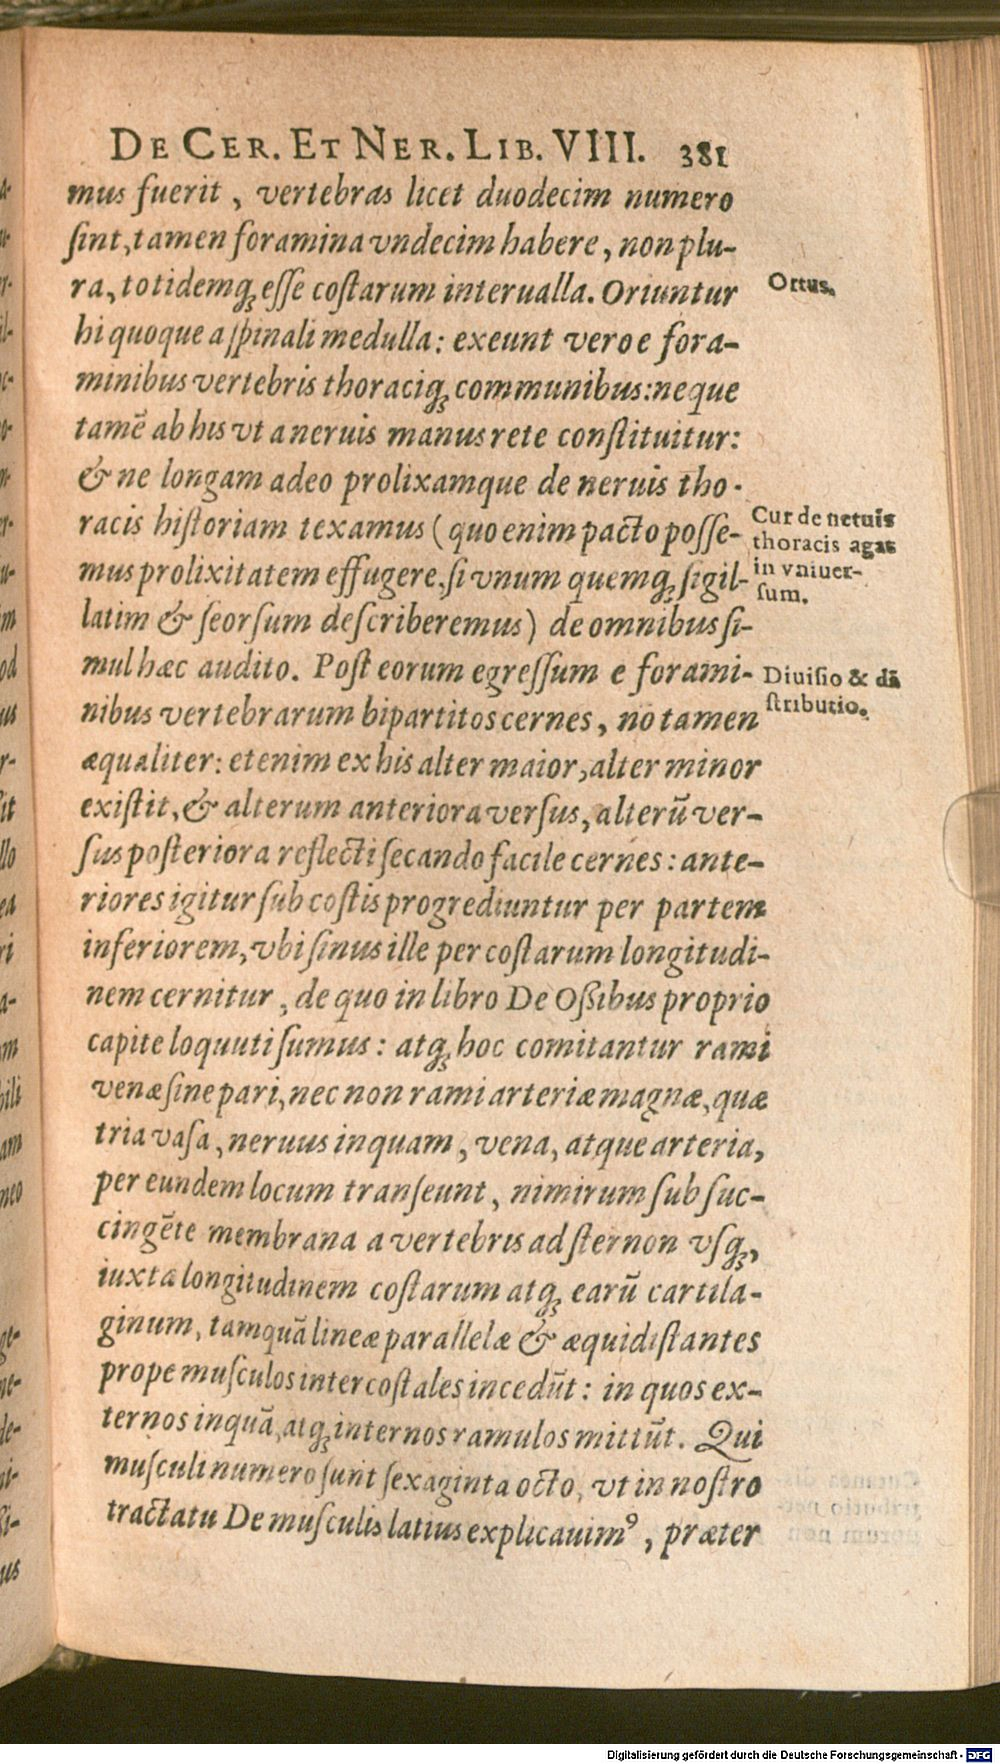 DE CER. ET NER. LIB. VIII. 381
mus fuerit, vertebras licet duodecim numero
ſint, tamen foramina vndecim habere, non plu-
ra, totidemq́; eſſe coſtarum interualla. Oriuntur
Ortus.
hi quoque a ſpinali medulla: exeunt vero e fora-
minibus vertebris thoraciq́; communibus: neque
tamē ab his vt a neruis manus rete conſtituitur:
& ne longam adeo prolixamque de neruis tho-
racis hiſtoriam texamus (quo enim pacto poſſe-
mus prolixitatem effugere, ſi vnum quemq́; ſigil-
latim & ſeorſum deſcriberemus) de omnibus ſi-
Cur de neruis
thoracis agas
in vniuer-
ſum.
mul hæc audito. Poſt eorum egreſſum e forami-
nibus vertebrarum bipartitos cernes, nō tamen
Diuiſio & di
ſtributio.
æqualiter: etenim ex his alter maior, alter minor
exiſtit, & alterum anteriora verſus, alterū ver-
ſus poſteriora reflecti ſecando facile cernes: ante-
riores igitur ſub coſtis progrediuntur per partem
inferiorem, vbi ſinus ille per coſtarum longitudi-
nem cernitur, de quo in libro De Oſsibus proprio
capite loquuti ſumus: atq́; hoc comitantur rami
venæ ſine pari, nec non rami arteriæ magnæ, quæ
tria vaſa, neruus inquam, vena, atque arteria,
per eundem locum tranſeunt, nimirum ſub ſuc-
cingēte membrana a vertebris ad ſternon vſq́;,
iuxta longitudinem coſtarum atq́; earū cartila-
ginum, tamquā lineæ parallelæ & æquidiſtantes
prope muſculos intercoſtales incedūt: in quos ex-
ternos inquā, atq́; internos ramulos mittūt. Qui
muſculi numero ſunt ſexaginta octo, vt in noſtro
tractatu De muſculis latius explicauimꝰ, præter
Digitalisierung gefördert durch die Deutsche Forschungsgemeinschaft - DFG